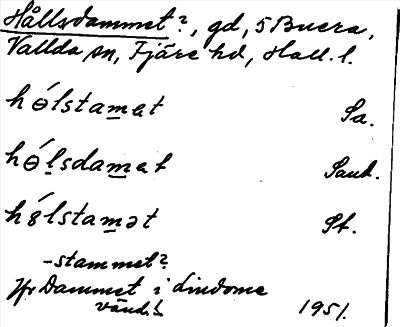 Hållsdammet?, gd, 5 Buera,
Vallda sn, Fjäre hd, Hall. l.
hө́lstamat Sa.
hө́lsdamat Sant.
hȣ́lstamət St.
-stammet?
Jfr Dammet i Lindome
1951.